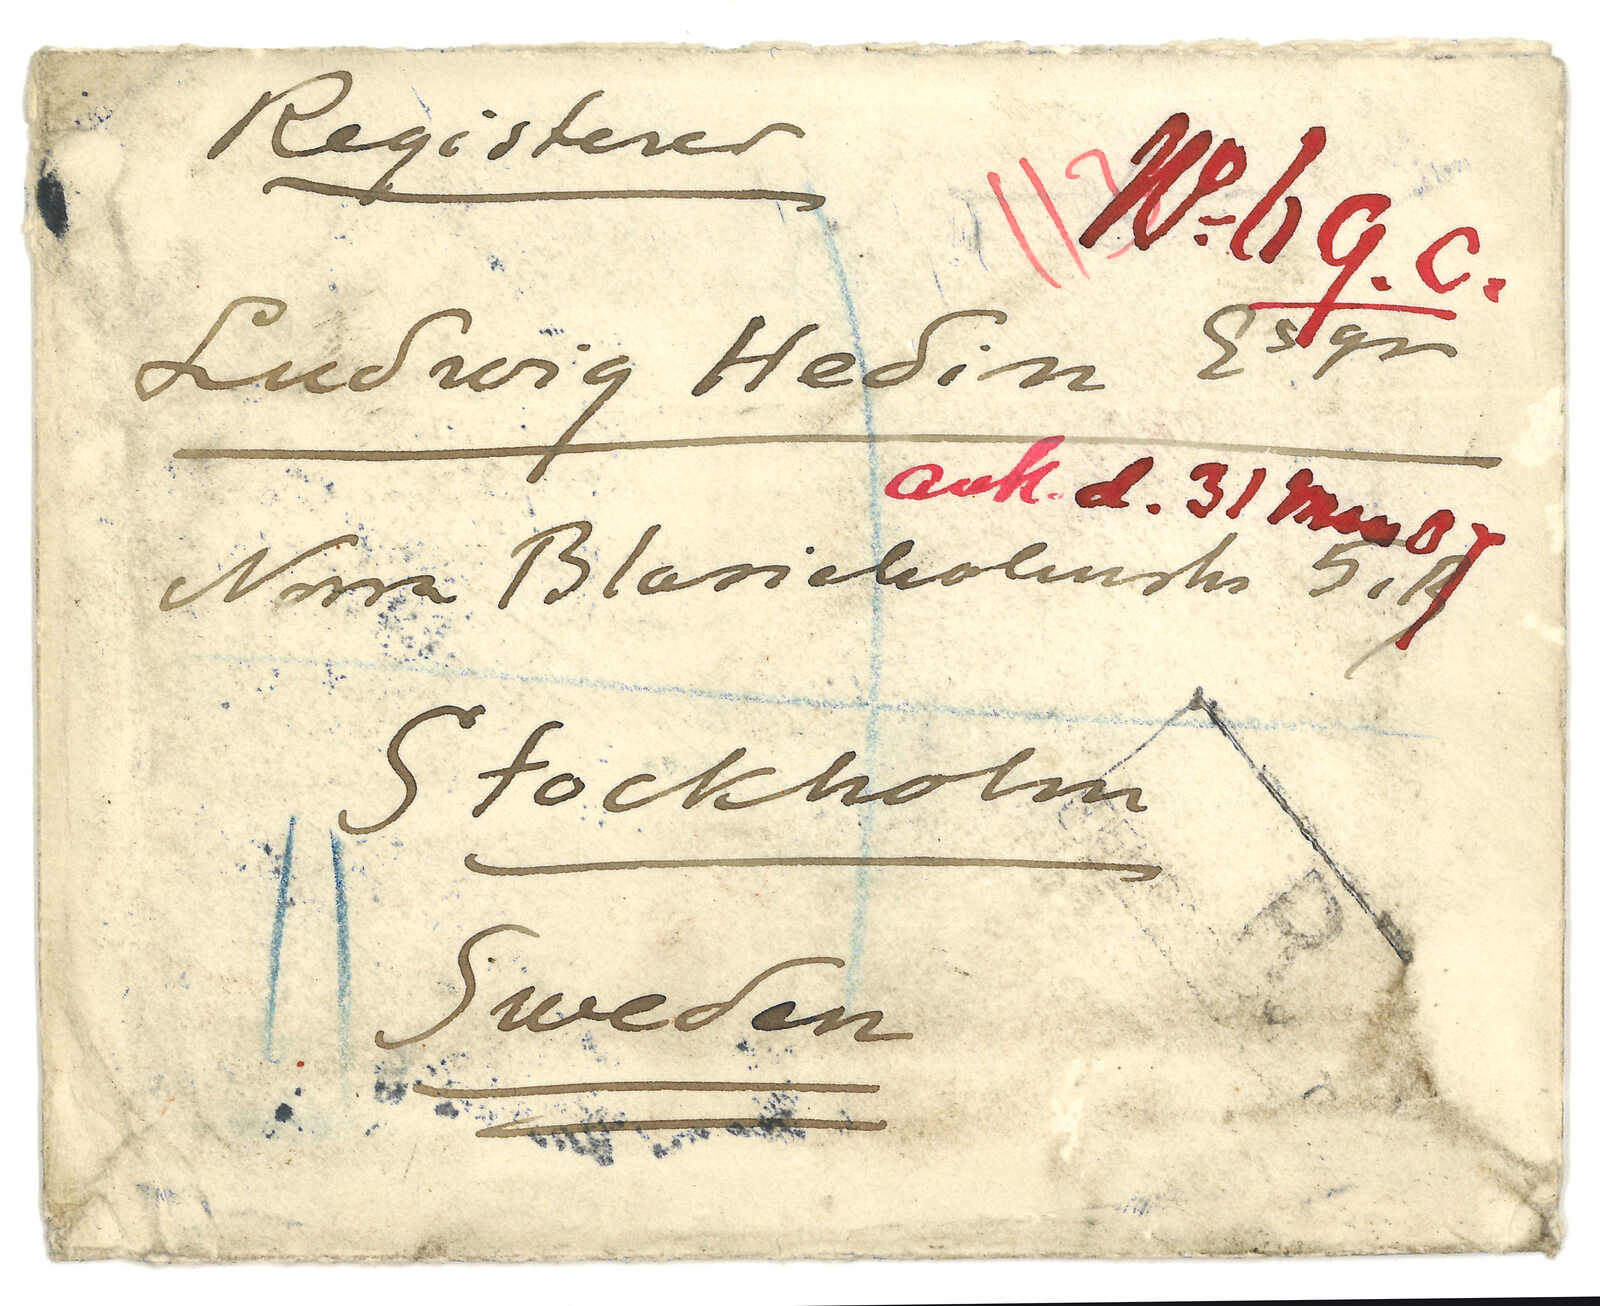 Registered
113
No 6 9. c.
Ludwig Hedin Esqr
ank. d. 31 Mars 07
Norra Blasieholmsh 5, B
Stockholm
Sweden
R